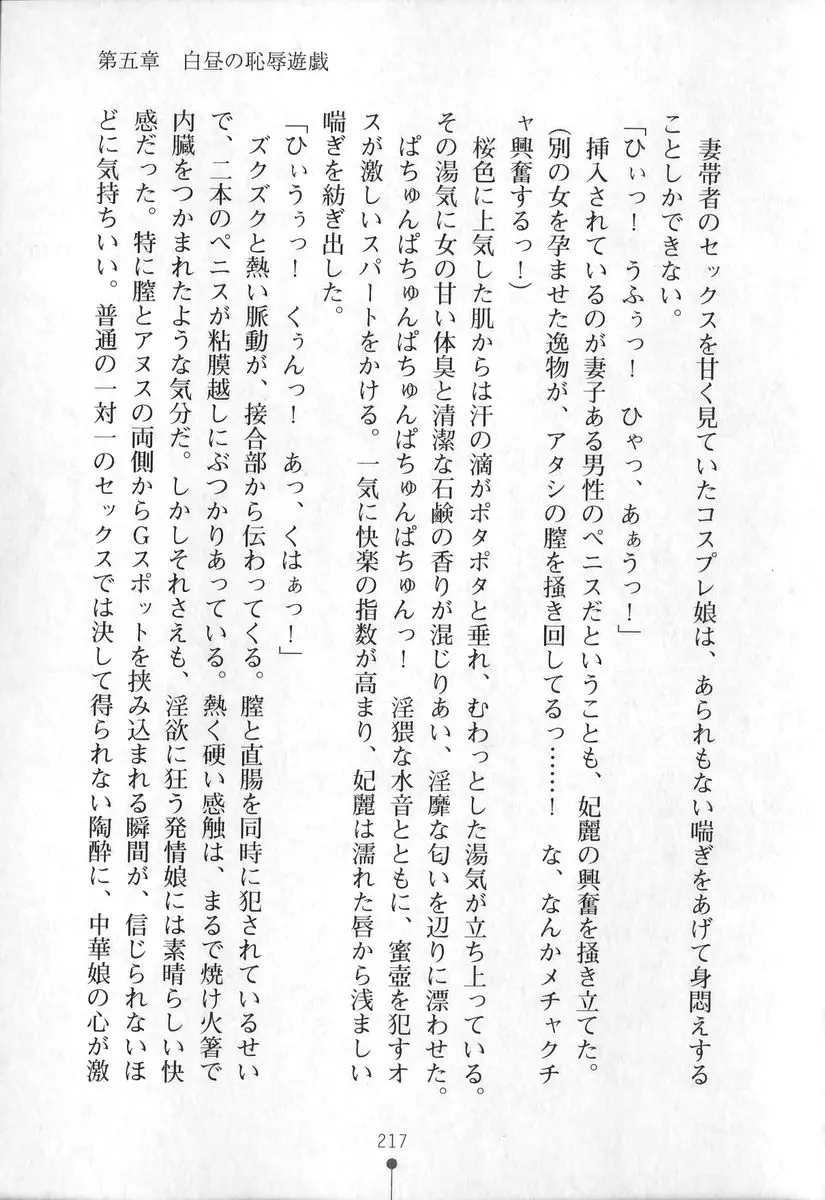 第五章　白昼の恥辱遊戯
妻帯者のセックスを甘く見ていたコスプレ娘は、あられもない喘ぎをあげて身悶えする
ことしかできない。
「ひぃっ！　うふぅっ！　ひゃっ、あぁうっ！」
挿入されているのが妻子ある男性のペニスだということも、妃麗の興奮を掻き立てた。
（別の女を孕ませた逸物が、アタシの膣を掻き回してるっ……！　な、なんかメチャクチ
ャ興奮するっ！）
桜色に上気した肌からは汗の滴がポタポタと垂れ、むわっとした湯気が立ち上っている。
その湯気に女の甘い体臭と清潔な石鹸の香りが混じりあい、淫靡な匂いを辺りに漂わせた。
ぱちゅんぱちゅんぱちゅんぱちゅんぱちゅんっ！　淫猥な水音とともに、蜜壺を犯すオ
スが激しいスパートをかける。一気に快楽の指数が高まり、妃麗は濡れた唇から浅ましい
喘ぎを紡ぎ出した。
「ひぃうぅっ！　くぅんっ！　あっ、くはぁっ！」
ズクズクと熱い脈動が、接合部から伝わってくる。膣と直腸を同時に犯されているせい
で、二本のペニスが粘膜越しにぶつかりあっている。熱く硬い感触は、まるで焼け火箸で
内臓をつかまれたような気分だ。しかしそれさえも、淫欲に狂う発情娘には素晴らしい快
感だった。特に膣とアヌスの両側からGスポットを挟み込まれる瞬間が、信じられないほ
どに気持ちいい。普通の一対一のセックスでは決して得られない陶酔に、中華娘の心が激
217